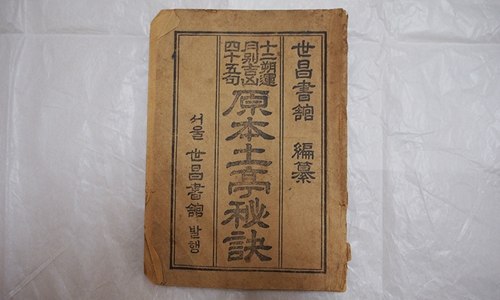 世昌書舘 編纂
十二朔運
月別吉凶
四十五句
原本土亭秘訣
서울 世昌書舘 발행